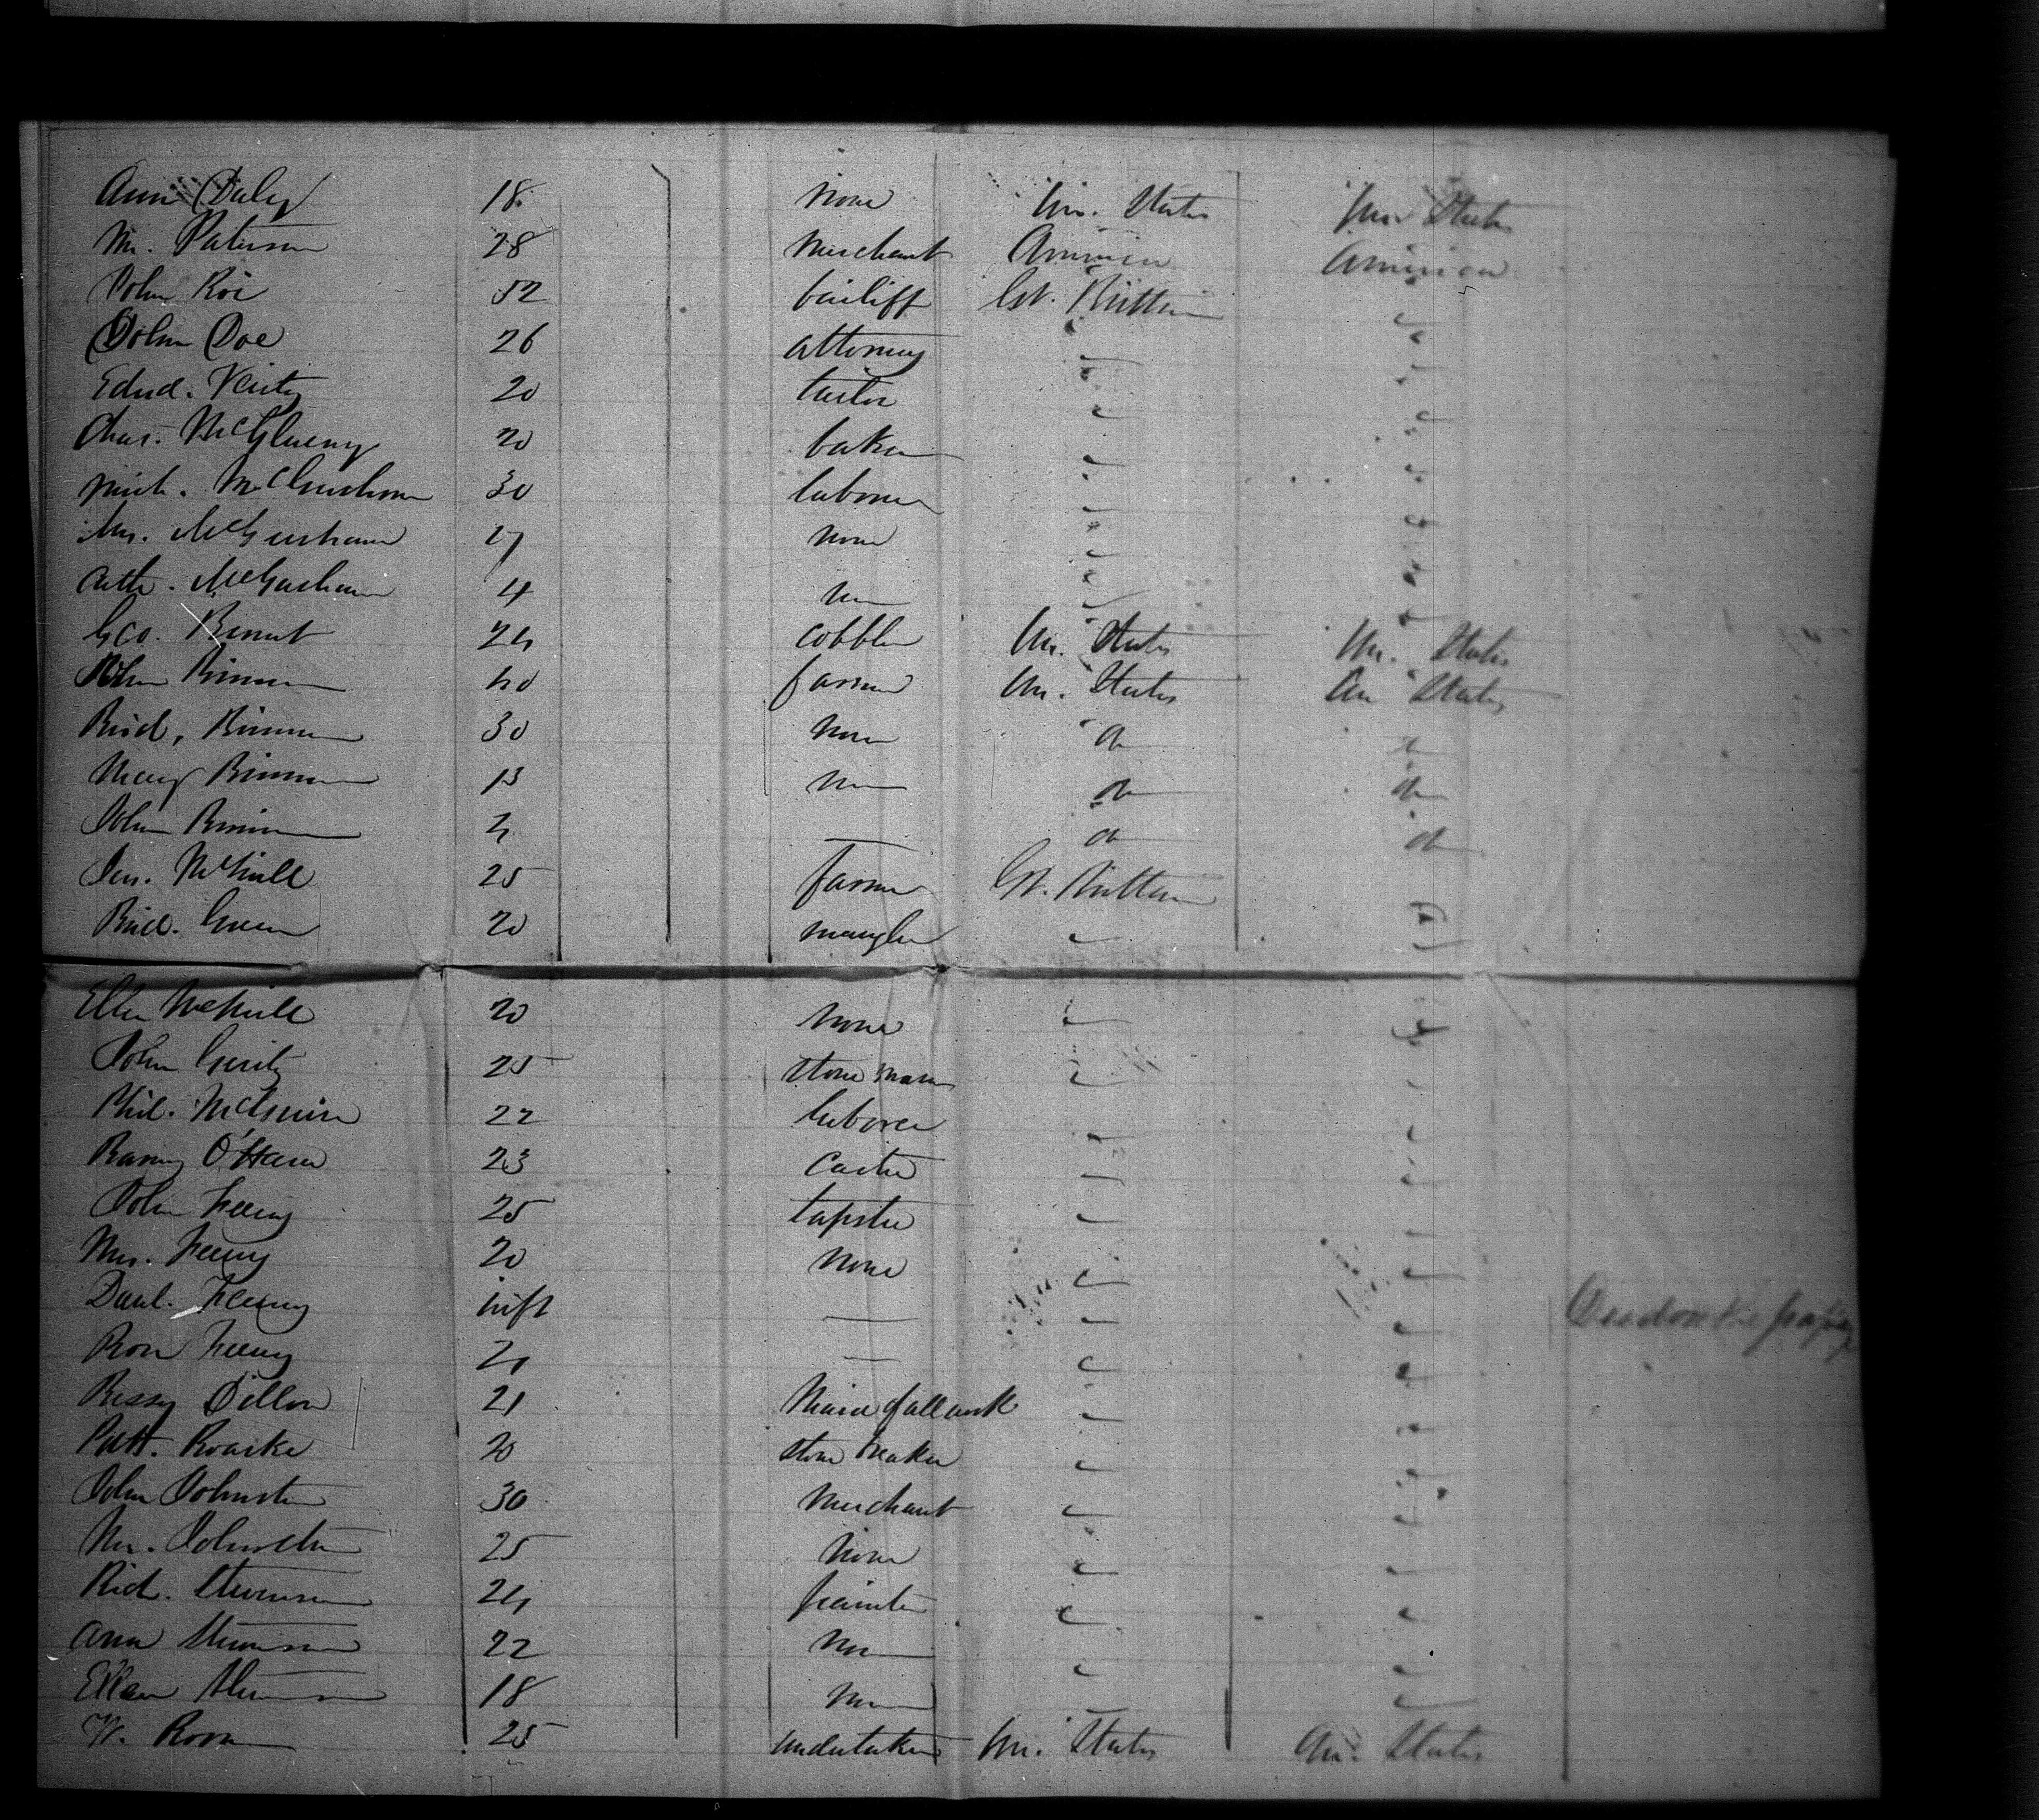 Ann Daly 18 none Un. States Un. States
M. Paterson 28 merchant America America
John Roe 52 bailiff Gt. Brittain "
John Doe 26 attorney " "
Edwd. Verity 20 tailor " "
Chas. 20 baker " "
Mich. 30 laborer " "
Mrs. 27 none " "
Cath. 4 none " "
Geo. Bennet 24 cobbler Un. States Un. States
John 40 farmer Un. States Un. States
Brid. 30 none do do
Mary 13 none do do
John 2 — do do
Jas. McNeill 25 farmer Gt. Brittain "
Brid. Green 20 mangler " "
Ellen McNeill 20 none " "
John 25 stone mason " "
Phil. McGuire 22 laborer " "
Barny O'Hara 23 " "
John Feeny 25 tapster " "
Mrs. Feeny 20 none " "
Danl. Feeny inft — " " Died on the passage
Rose Feeny 2 — " "
Bessy Dillon 21 Maid of all work " "
Patt. Roarke 20 stone breaker " "
John Johnston 30 merchant " "
Mrs. Johnston 25 none " "
Rich. Stevenson 24 painter " "
Ann Stevenson 22 none " "
Ellen Stevenson 18 none " "
W. 25 undertaker Un. States Un. States